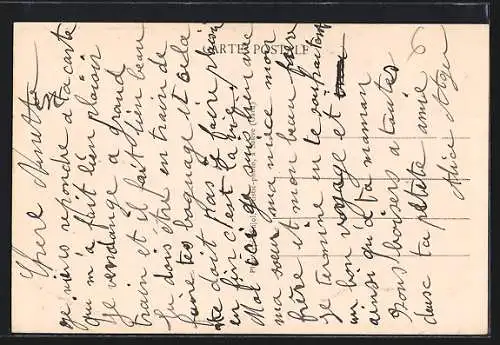 CARTE POSTALE
Chère Ninette
je viens repondre à ta carte
qui m'a fait bien plaisir
Je vendange a grand
train et il fait bien beau
tu dois être en train de
faire tes baguage et cela
ne doit pas faire plaisir
en fin c'est la vie.
Moi ici je suis bien avec
ma sœur ma nice mon
frère et mon beau frère
Je termine en te souhaitant
un bon voyage et
ainsi qu'à ta maman
Bons baisers a toutes
deux ta petite amie
Alice Alger